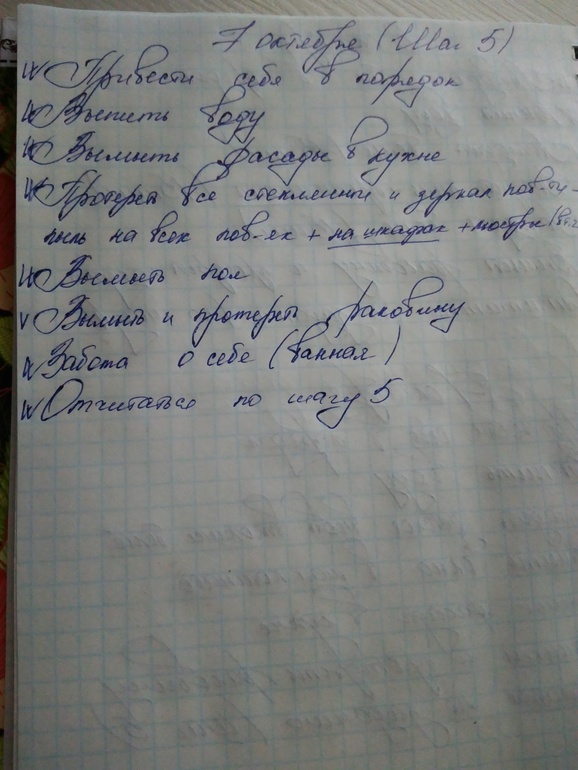 7 октября (Шаг 5)
Привести себя в порядок
Выпить воду
Вымыть фасады в кухне
Протереть все стеклянные и зеркал пов-ти -
пыль на всех пов-ях + на шкафах + люстры
Вымыть пол
Вымыть и протереть раковину
Забота о себе (ванная)
Отчитаться по шагу 5